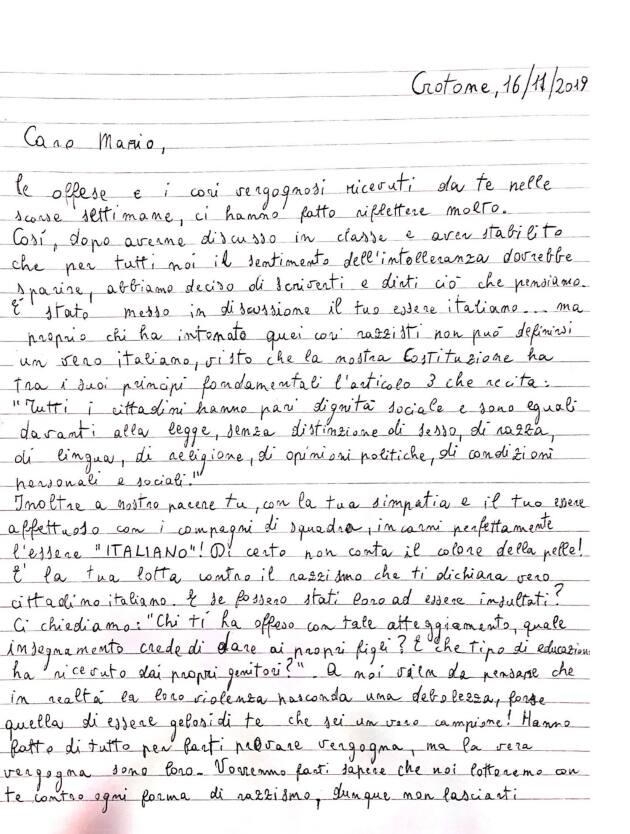 Crotone, 16/11/2019
Caro Mario,
le offese e i cori vergognosi ricevuti da te nelle
scorse settimane, ci hanno fatto riflettere molto.
Così, dopo averne discusso in classe e aver stabilito
che per tutti noi il sentimento dell'intolleranza dovrebbe
sparire, abbiamo deciso di scriverti e dirti ciò che pensiamo.
E' stato messo in discussione il tuo essere italiano... ma
proprio chi ha intonato quei cori razzisti non può definirsi
un vero italiano, visto che la nostra Costituzione ha
tra i suoi principi fondamentali l'articolo 3 che recita:
"Tutti i cittadini hanno pari dignità sociale e sono eguali
davanti alla legge, senza distinzione di sesso, di razza,
di lingua, di religione, di opinioni politiche, di condizioni
personali e sociali."
Inoltre a nostro parere tu, con la tua simpatia e il tuo essere
affettuoso con i compagni di squadra, incarni perfettamente
l'essere "ITALIANO"! Di certo non conta il colore della pelle!
E' la tua lotta contro il razzismo che ti dichiara vero
cittadino italiano. E se fossero stati loro ad essere insultati?
Ci chiediamo: "Chi ti ha offeso con tale atteggiamento, quale
insegnamento crede di dare ai propri figli? E che tipo di educazione
ha ricevuto dai propri genitori?". A noi vien da pensare che
in realtà la loro violenza nasconda una debolezza, forse
quella di essere gelosi di te che sei un vero campione! Hanno
fatto di tutto per farti provare vergogna, ma la vera
vergogna sono loro. Vorremmo farti sapere che noi lotteremo con
te contro ogni forma di razzismo, dunque non lasciarti